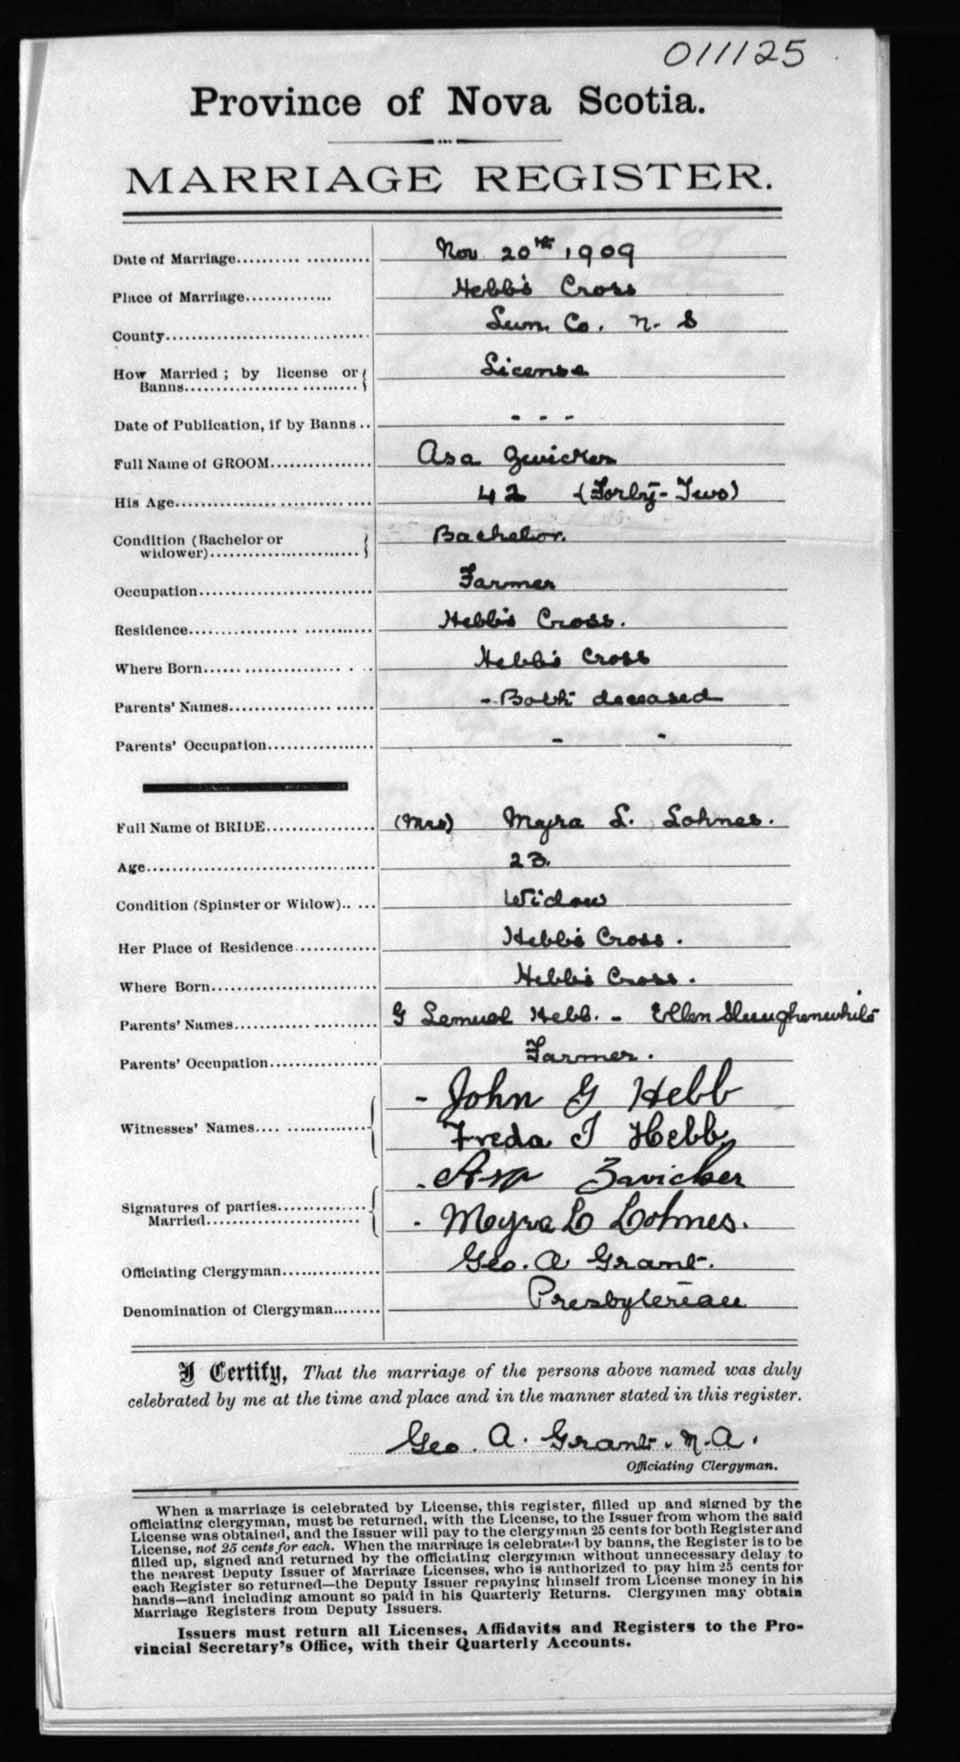 011125
Province of Nova Scotia.
MARRIAGE REGISTER.
Date of Marriage.................... Nov 20th, 1909
Place of Marriage............. Hebb's Cross
County............................... Lun. Co. N. S
How Married; by license or Banns............................. License
Date of Publication, if by Banns .. - - -
Full Name of GROOM................ Asa Zwicker
His Age............................... 42 (Forty-Two)
Condition (Bachelor or widower)........................ Bachelor.
Occupation........................... Farmer
Residence............................ Hebb's Cross.
Where Born.......................... Hebb's Cross
Parents' Names...................... - Both deceased
Parents' Occupation................. - -
Full Name of BRIDE................. (Mrs) Myra L. Lohnes.
Age.................................... 23.
Condition (Spinster or Widow).. ... Widow
Her Place of Residence............. Hebb's Cross.
Where Born.......................... Hebb's Cross.
Parents' Names...................... G Lemuel Hebb. - Ellen
Parents' Occupation................. Farmer.
- John G Hebb
Witnesses' Names.... ..............
Freda J Hebb
. Asa Zwicker
Signatures of parties Married.......................
. Meyra L Lohnes.
Officiating Clergyman............... Geo. A Grant.
Denomination of Clergyman........ Presbyterian
I Certify, That the marriage of the persons above named was duly
celebrated by me at the time and place and in the manner stated in this register.
Geo. A. Grant. M.A.
Officiating Clergyman.
When a marriage is celebrated by License, this register, filled up and signed by the
officiating clergyman, must be returned, with the License, to the Issuer from whom the said
License was obtained, and the Issuer will pay to the clergyman 25 cents for both Register and
License, not 25 cents for each. When the marriage is celebrated by banns, the Register is to be
filled up, signed and returned by the officiating clergyman without unnecessary delay to
the nearest Deputy Issuer of Marriage Licenses, who is authorized to pay him 25 cents for
each Register so returned—the Deputy Issuer repaying himself from License money in his
hands—and including amount so paid in his Quarterly Returns. Clergymen may obtain
Marriage Registers from Deputy Issuers.
Issuers must return all Licenses, Affidavits and Registers to the Pro-
vincial Secretary's Office, with their Quarterly Accounts.